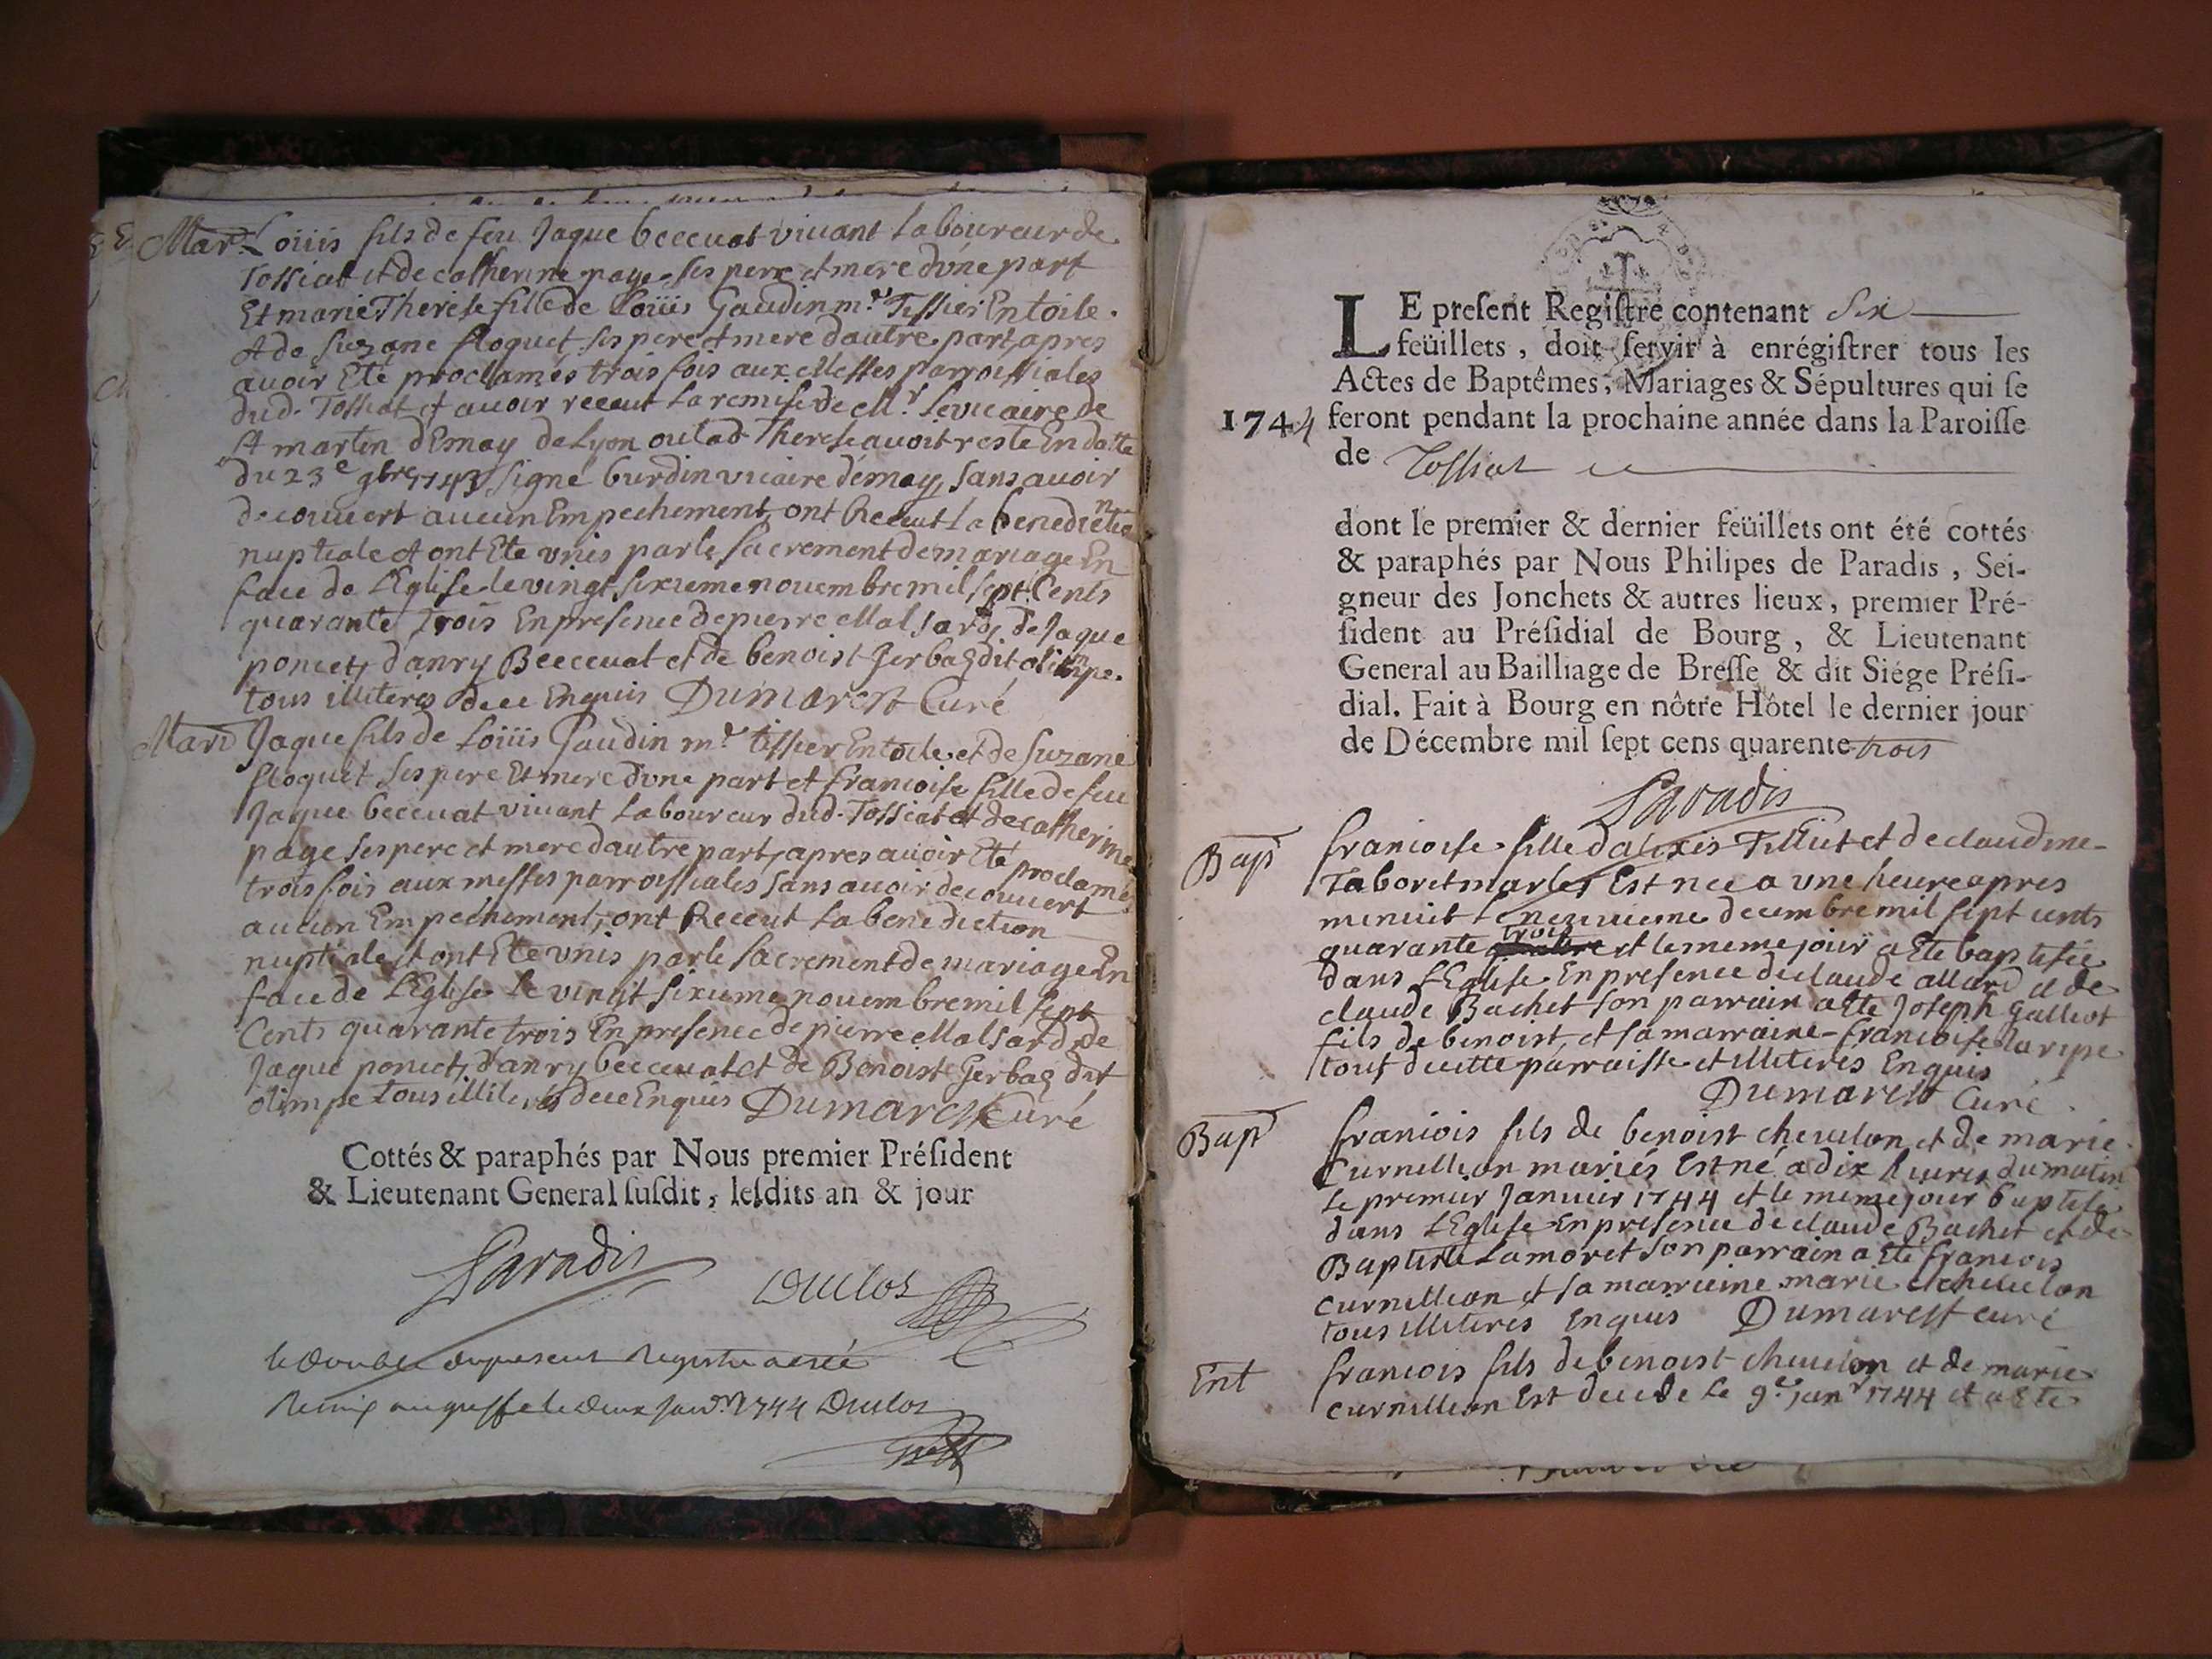 Mar. Loüis fils de feu Jaque beccuat viuant Laboureur de
Tossiat et de catherine page ses pere et mere d'vne part
Et marie Therese fille de Loüis Gaudin m.e Tissier En toile
et de Suzane floquet ses pere et mere dautre part, apres
auoir Eté proclamés trois fois aux Messes parroissiales
dud. Tossiat et auoir receut La remise de M.r Le vicaire de
St martin d'Esnay de Lyon ou Lad. Therese auoit resté En datte
du 23e 9bre 1743 signé burdin vicaire d'esnay, sans avoir
decouuert aucun Empechement, ont Receut La benediction
nuptiale et ont Eté vnis par le sacrement de mariage En
face de L'Eglise le vingt sixieme nouembre mil sept Cents
quarante trois En presence de pierre Malsard, de Jaque
poncet, d'anry Beccuat et de benoist Gerbag dit olimpe
tous illiteres de ce Enquis Dumarest Curé
Mari Jaque fils de Loüis Gaudin m.e tissier En toile et de Suzane
floquet ses pere Et mere d'vne part et francoise fille de feu
Jaque beccuat viuant Laboureur dud. Tossiat et de catherine
page ses pere et mere dautre part, apres auoir Eté proclamés
trois fois aux messes parroissiales sans auoir decouuert
aucun Empechement, ont Receut La benediction
nuptiale et ont Eté vnis par le sacrement de mariage En
face de L'Eglise Le vingt sixieme nouembre mil sept
Cents quarante trois En presence de pierre Malsard, de
Jaque poncet, d'anry beccuat et de Benoist Gerbag dit
olimpe tous illiterés de ce Enquis Dumarest Curé
Cottés & paraphés par Nous premier Préſident
& Lieutenant General ſuſdit, leſdits an & jour
Paradis Duclos
le double du present Registre a esté
Remis au greffe le deux janv.r 1744 Duclos
LE preſent Regiſtre contenant Six
feüillets, doit ſervir à enrégiſtrer tous les
Actes de Baptêmes, Mariages & Sépultures qui ſe
1744 feront pendant la prochaine année dans la Paroiſſe
de Tossiat
dont le premier & dernier feüillets ont été cottés
& paraphés par Nous Philipes de Paradis, Sei-
gneur des Jonchets & autres lieux, premier Pré-
ſident au Préſidial de Bourg, & Lieutenant
General au Bailliage de Breſſe & dit Siége Préſi-
dial. Fait à Bourg en nôtre Hôtel le dernier jour
de Décembre mil ſept cens quarente trois
Paradis
Bap francoise fille d'alexis Tilliet et de claudine
Taboret mariés Est née a vne heure apres
minuit Le neuuieme decembre mil sept cents
quarante trois et le meme jour a Eté baptisée
dans L'Eglise En presence de claude allard et de
claude Bachet son parrain a Eté Joseph galliot
fils de benoist, et sa marraine francoise
tous de cette parroisse et illiterés Enquis
Dumarest Curé
Bap francois fils de benoist cheuelon et de marie
Curnillion mariés Est né a dix heures du matin
Le premier Januier 1744 et le meme jour baptisé
dans L'Eglise En presence de claude Bachet et de
Baptiste Lamoret son parrain a Eté francois
curnillion et sa marraine marie cheuelon
tous illiterés Enquis Dumarest curé
Ent francois fils de benoist cheuelon et de marie
curnillion Est decedé Le 9.e jan.r 1744 et a Eté